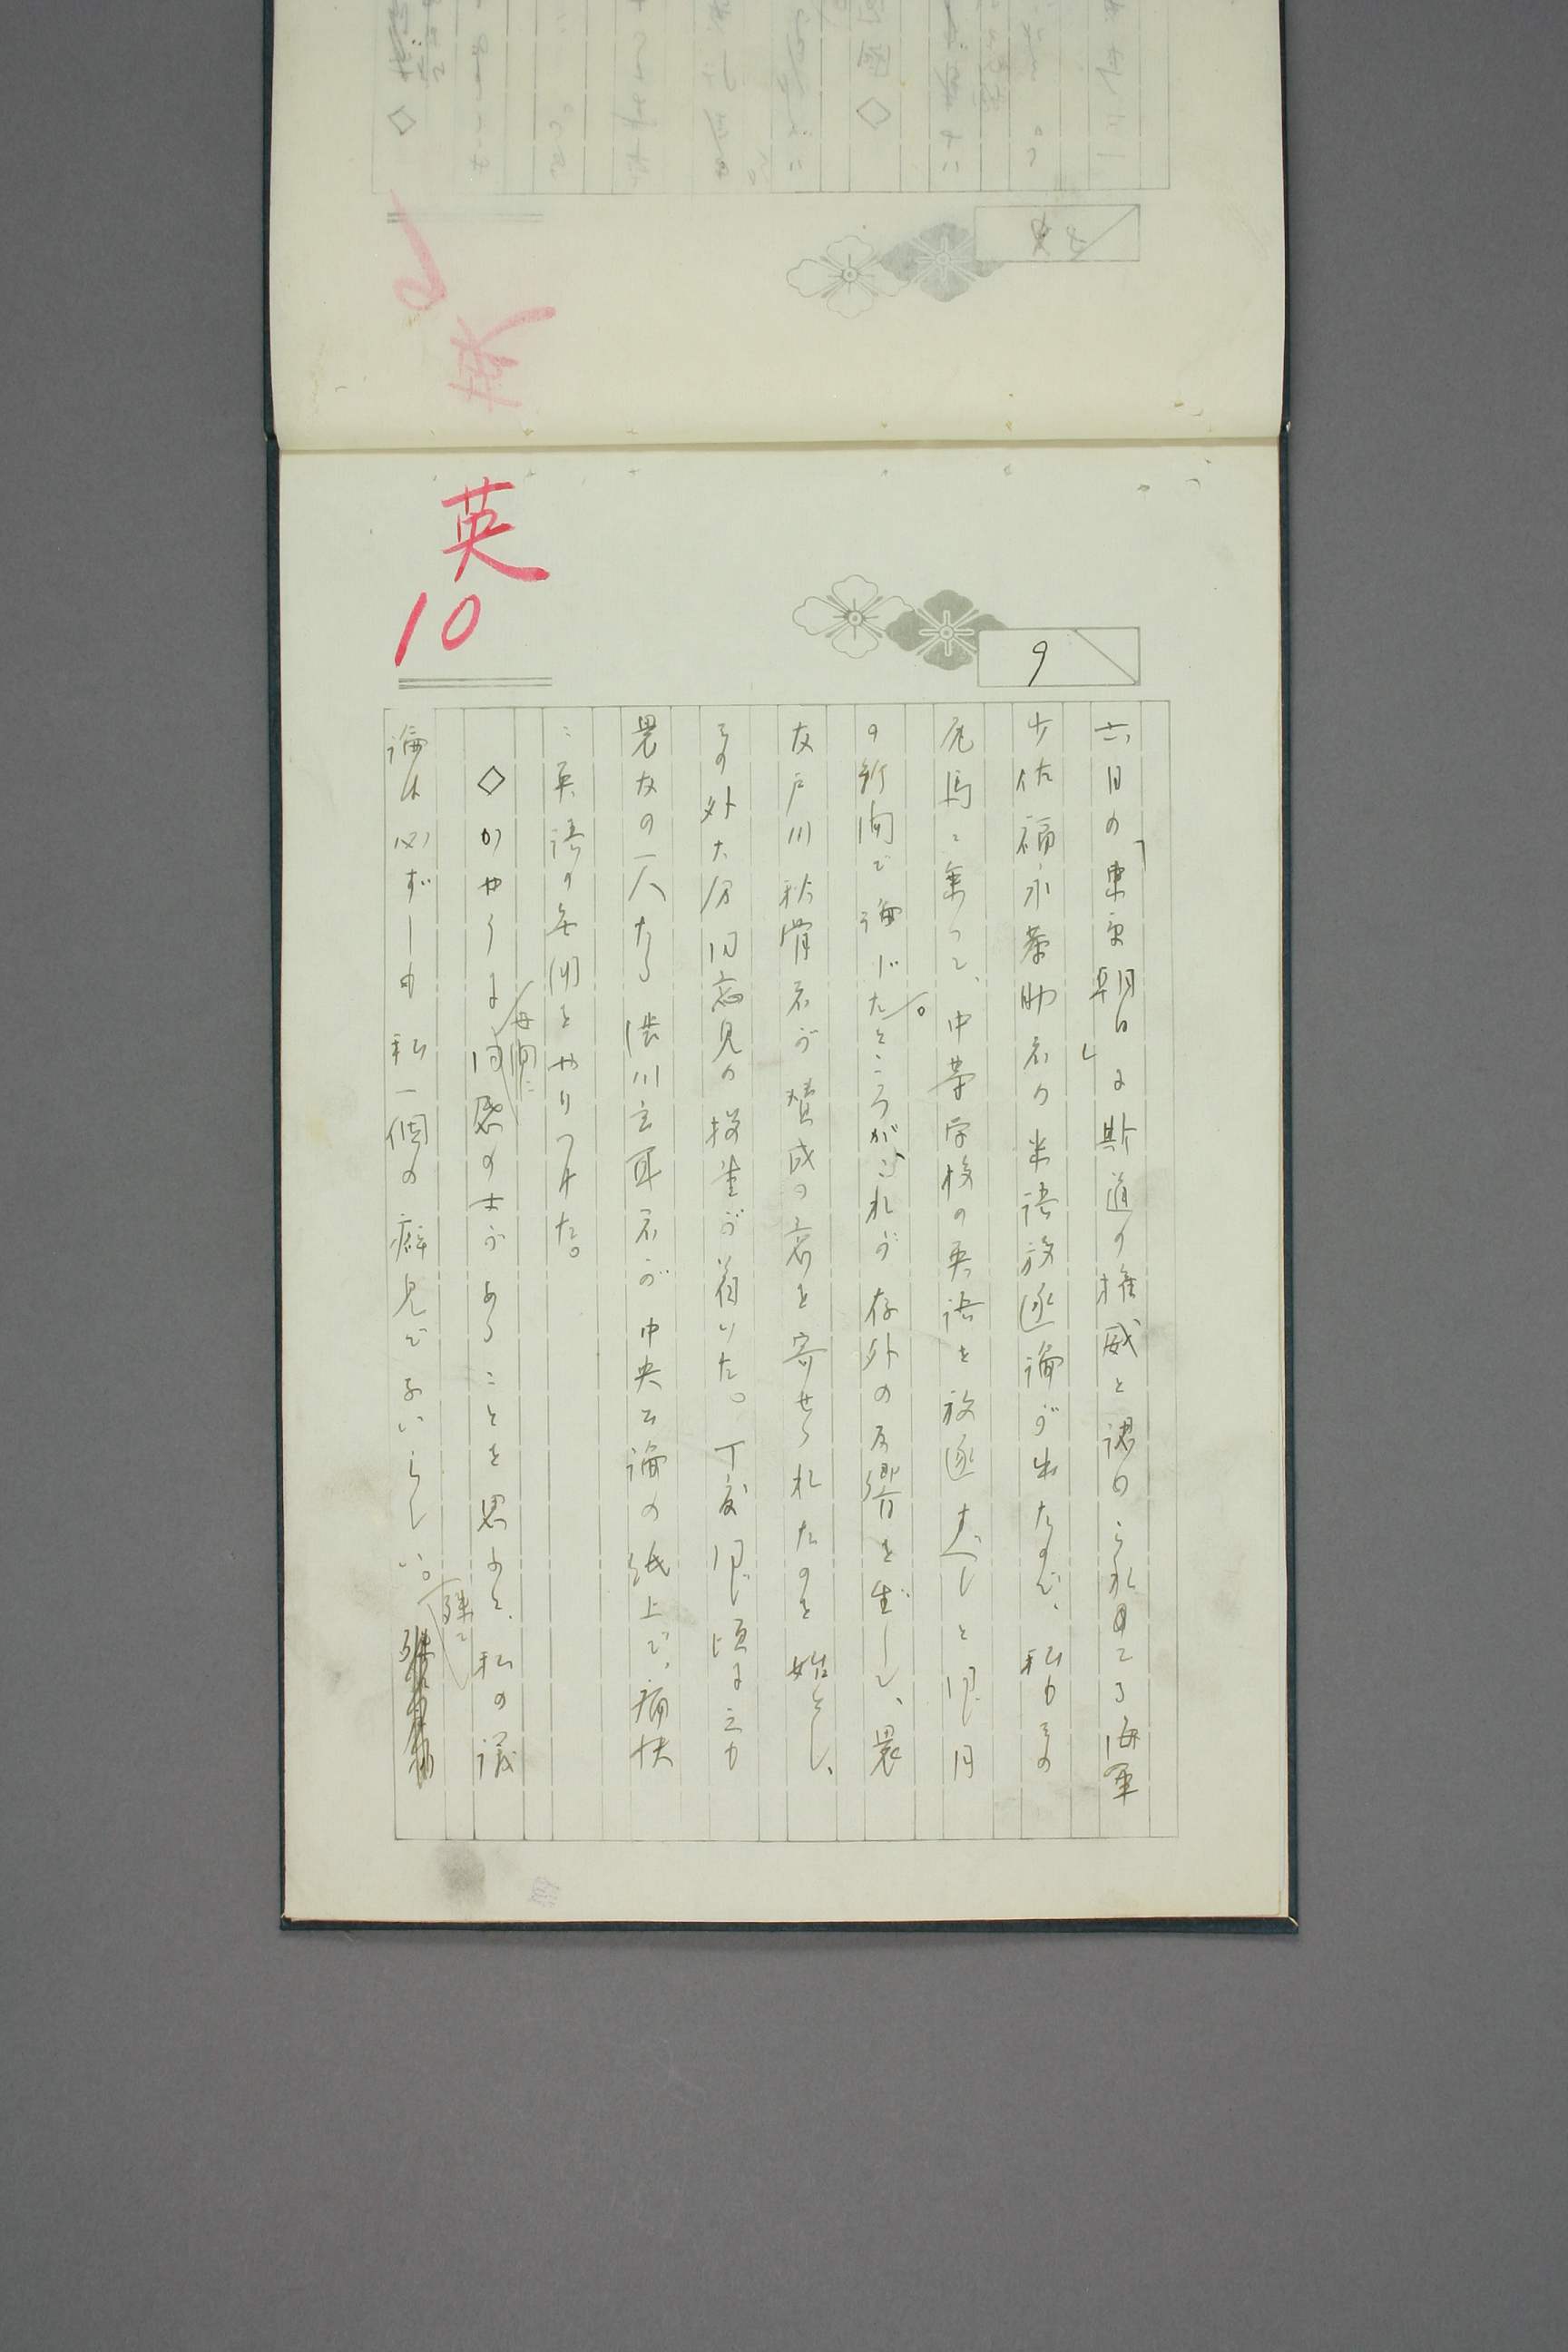 英
10
9
六日の「東京朝日」に斯道の権威と認められてゐる海軍
少佐福永恭助君の米語放逐論が出たので、私もその
尻馬に乗つて、中等学校の英語を放逐すべしと同じ月
の新聞で論じた。ところがこれが存外の反響を生じて、畏
友戸川秋骨君が賛成の意を寄せられたのを始とし、
その外大分同意見の投書が着いた。丁度同じ頃に之も
畏友の一人たる渋川玄耳君が中央公論の紙上で、痛快
に英語の
をやりつけた。
◇かやうに世間に同感の士があることを思ふと、私の議
論は必ずしも私一個の癖見でないらしい。殊に